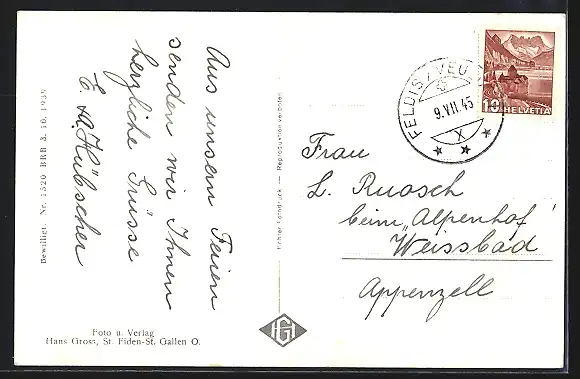 Aus unsern Ferien
senden wir Ihnen
herzliche Grüsse
E. Hübscher
Bewilligt. Nr. 1520 BRB 3. 10. 1939
Foto u. Verlag
Hans Gross, St. Fiden-St. Gallen O.
Echter Fotodruck — Reproduktion verboten
HG
FELDIS/VEU
9.VII.45
X
10 HELVETIA
Frau
L. Ruosch
beim "Alpenhof"
Weissbad
Appenzell